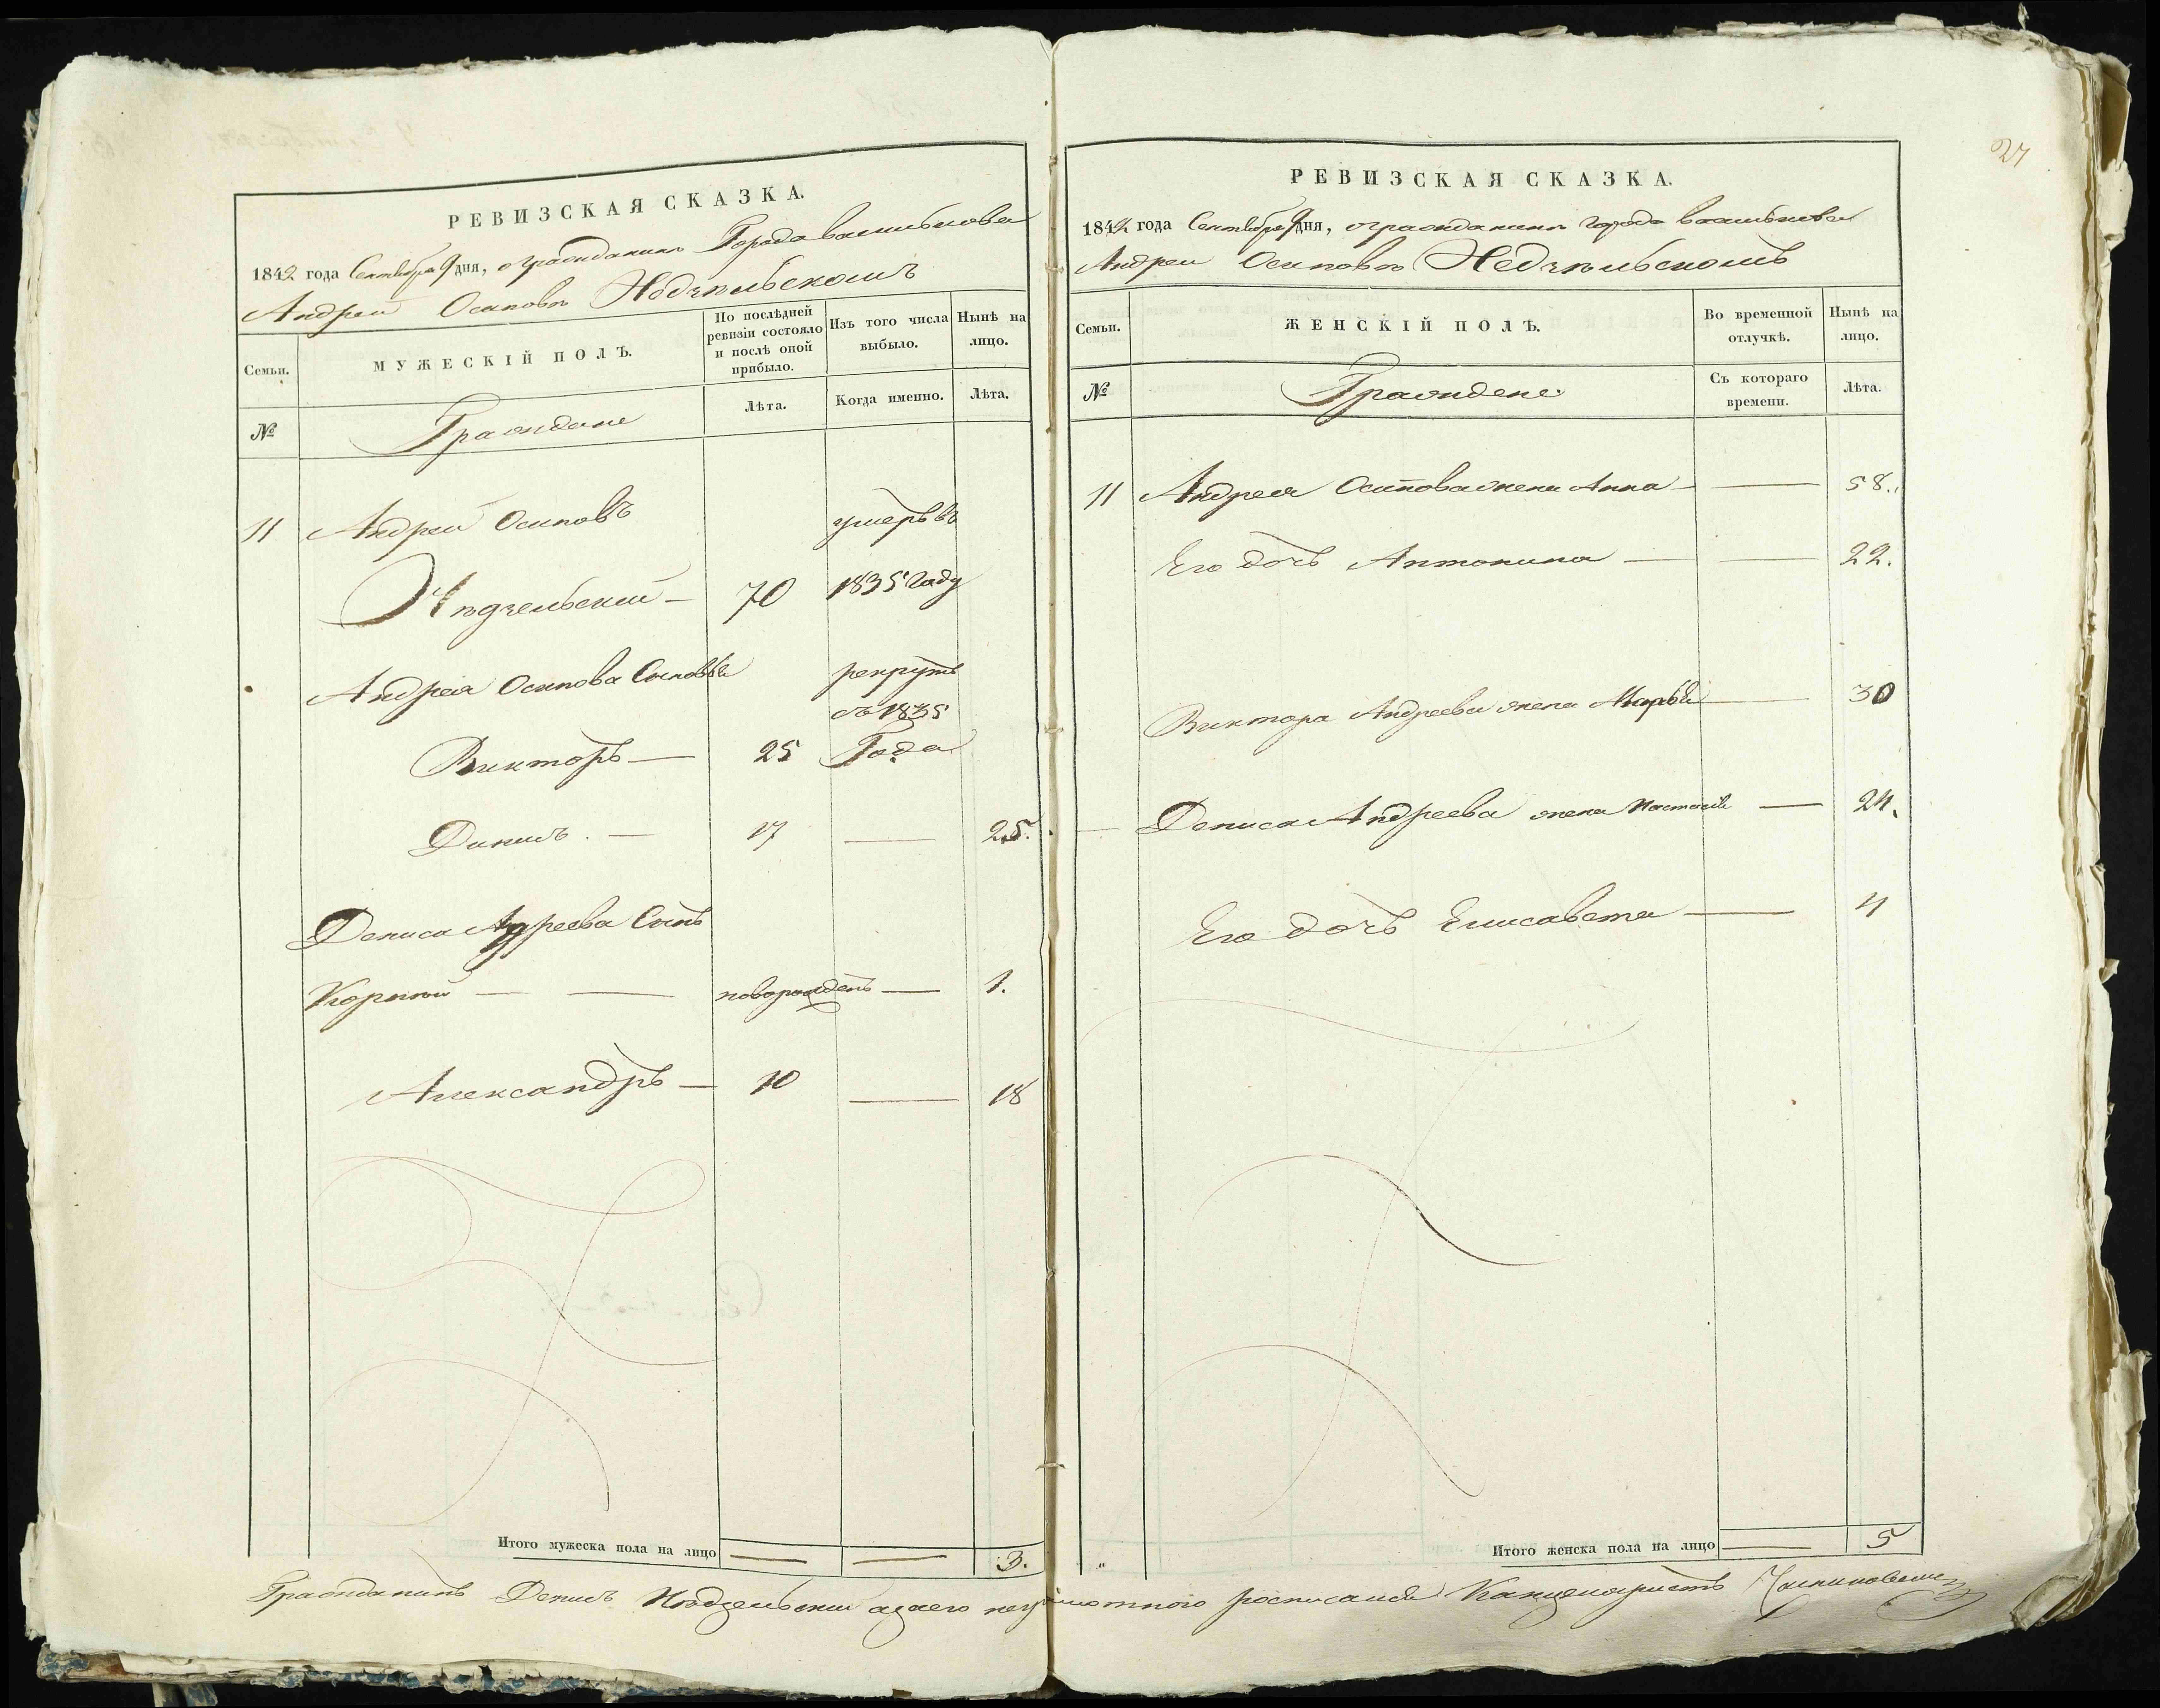 РЕВИЗСКАЯ СКАЗКА.
1842 года Сентября 9 дня, о гражданинѣ Города Василькова
Андреи Осиповѣ
Семьи.
МУЖЕСКІЙ ПОЛЪ.
По послѣдней ревизіи состояло и послѣ оной прибыло.
Изъ того числа выбыло.
Нынѣ на лицо.
№
Граждане
Лѣта.
Когда именно.
Лѣта.
11 Андрей Осиповъ умеръ въ
70 1835 Году
Андрея Осипова Сыновья рекрутъ
съ 1835
Викторъ — 25 Года
Денисъ. — 17 — 25.
Дениса Андреева Сынъ
Корній — — новорожденъ — 1.
Александръ — 10 — 18
Итого мужеска пола на лицо — — 3.
27
РЕВИЗСКАЯ СКАЗКА.
1842 года Сентября 9 дня, о гражданинѣ города Василькова
Андреи Осиповѣ
Семьи.
ЖЕНСКІЙ ПОЛЪ.
Во временной отлучкѣ.
Нынѣ на лицо.
№
Граждане
Съ котораго времени.
Лѣта.
11 Андрея Осипова жена Анна — — 58.
Его дочь Антонина — — 22.
Виктора Андреева жена Марья — 30
— Дениса Андреева жена Настасія — 24.
Его дочь Елисавета — 4
Итого женска пола на лицо — 5
Гражданинъ Денисъ а за его неграмотного росписался Канцеляристъ